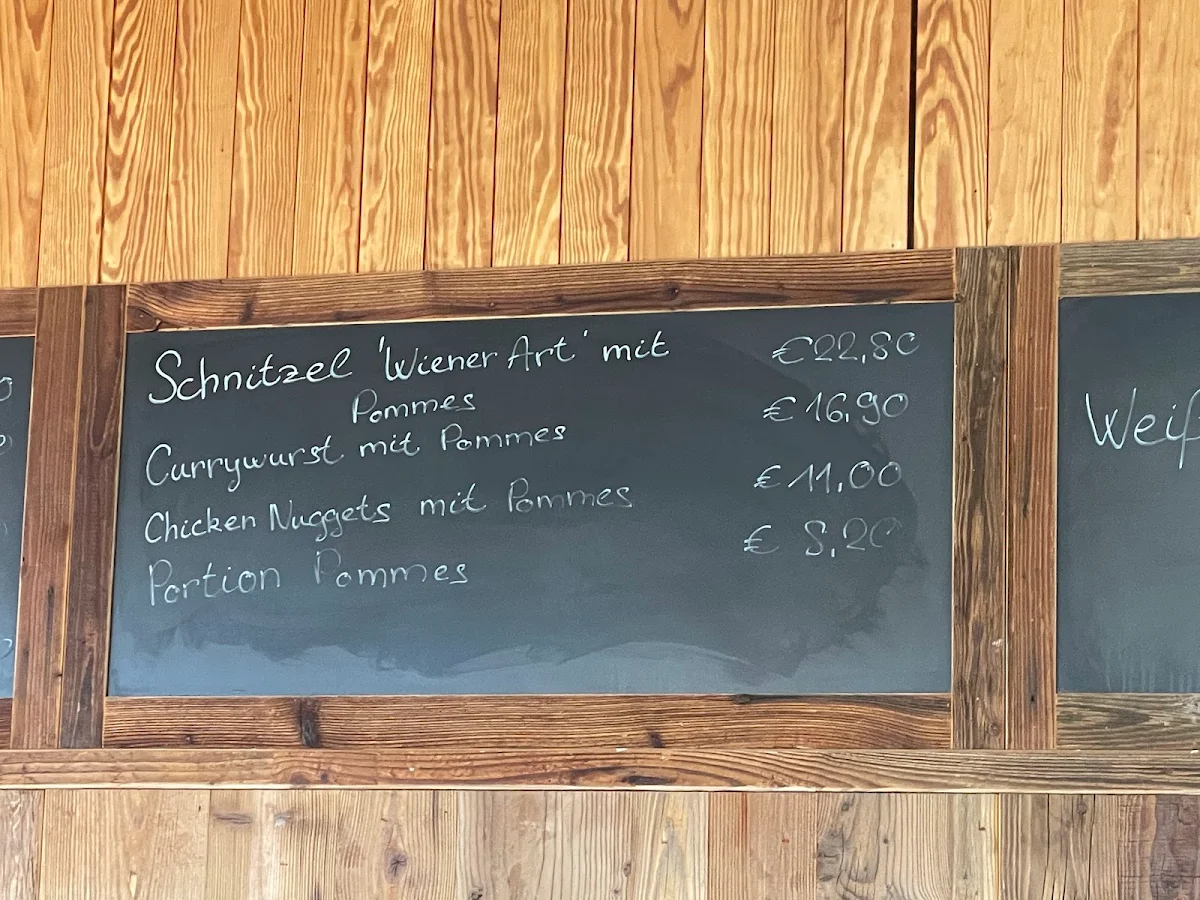 Schnitzel 'Wiener Art' mit €22,80
Pommes
Currywurst mit Pommes €16,90
Chicken Nuggets mit Pommes €11,00
Portion Pommes € 8,20